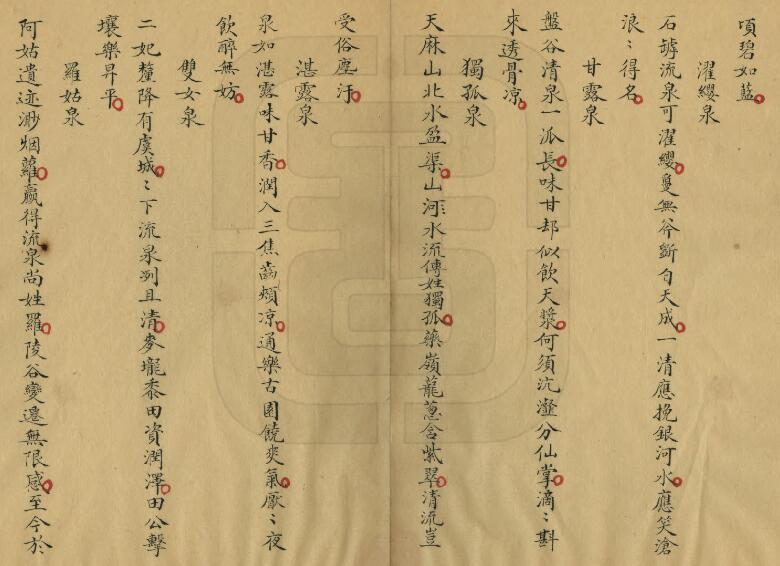 頃碧如藍
濯纓泉
石罅流泉可濯纓戛無斧斷自天成一清應挽銀河水應笑滄
浪〻得名
甘露泉
盤谷清泉一派長味甘却似飲天漿何須沆瀣分仙掌滴〻斟
來透骨凉
獨孤泉
天麻山北水盈渠山河水流傳姓獨孤藥嶺龍蔥含紫翠清流豈
受俗塵汙
湛露泉
泉如湛露味甘香潤入三焦齒頰凉通樂古園饒爽氣厭〻夜
飲醉無妨
雙女泉
二妃釐降有虞城〻下流泉冽且清麥壠黍田資潤澤田公擊
壤樂昇平
羅姑泉
阿姑遺迹渺烟蘿贏得流泉尚姓羅陵谷變遷無限感至今於